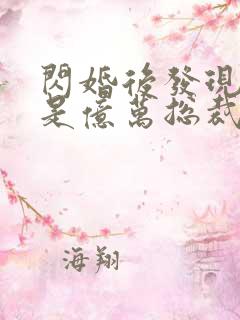 閃婚後發現
是億萬總裁
海翔